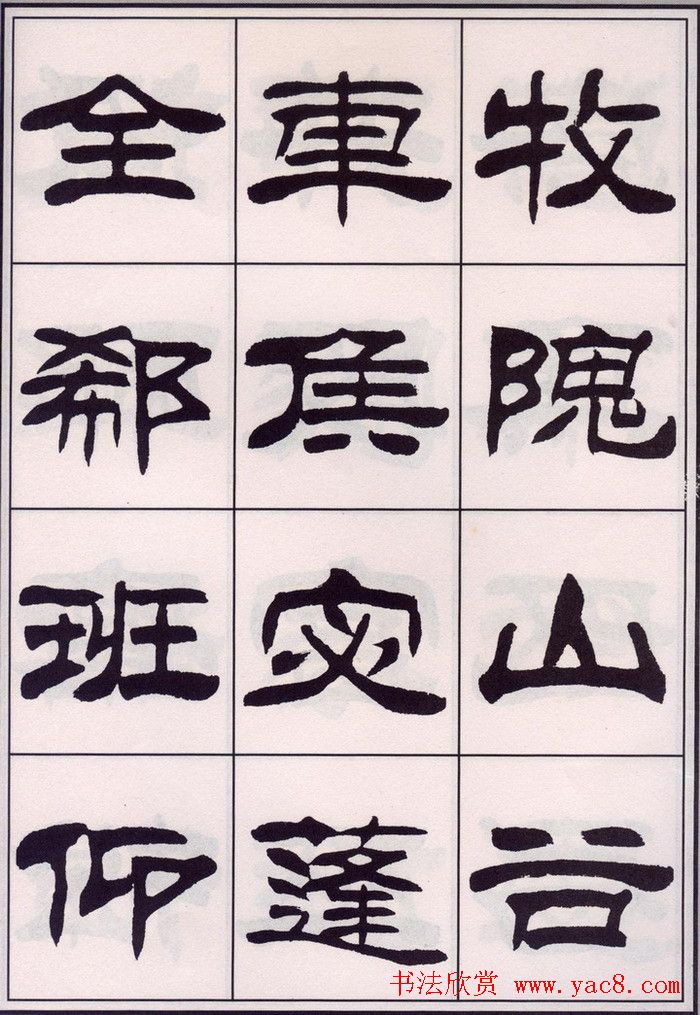 牧隗山谷
車侯宓蓬
全郗班仰
书法欣赏 www.yac8.com